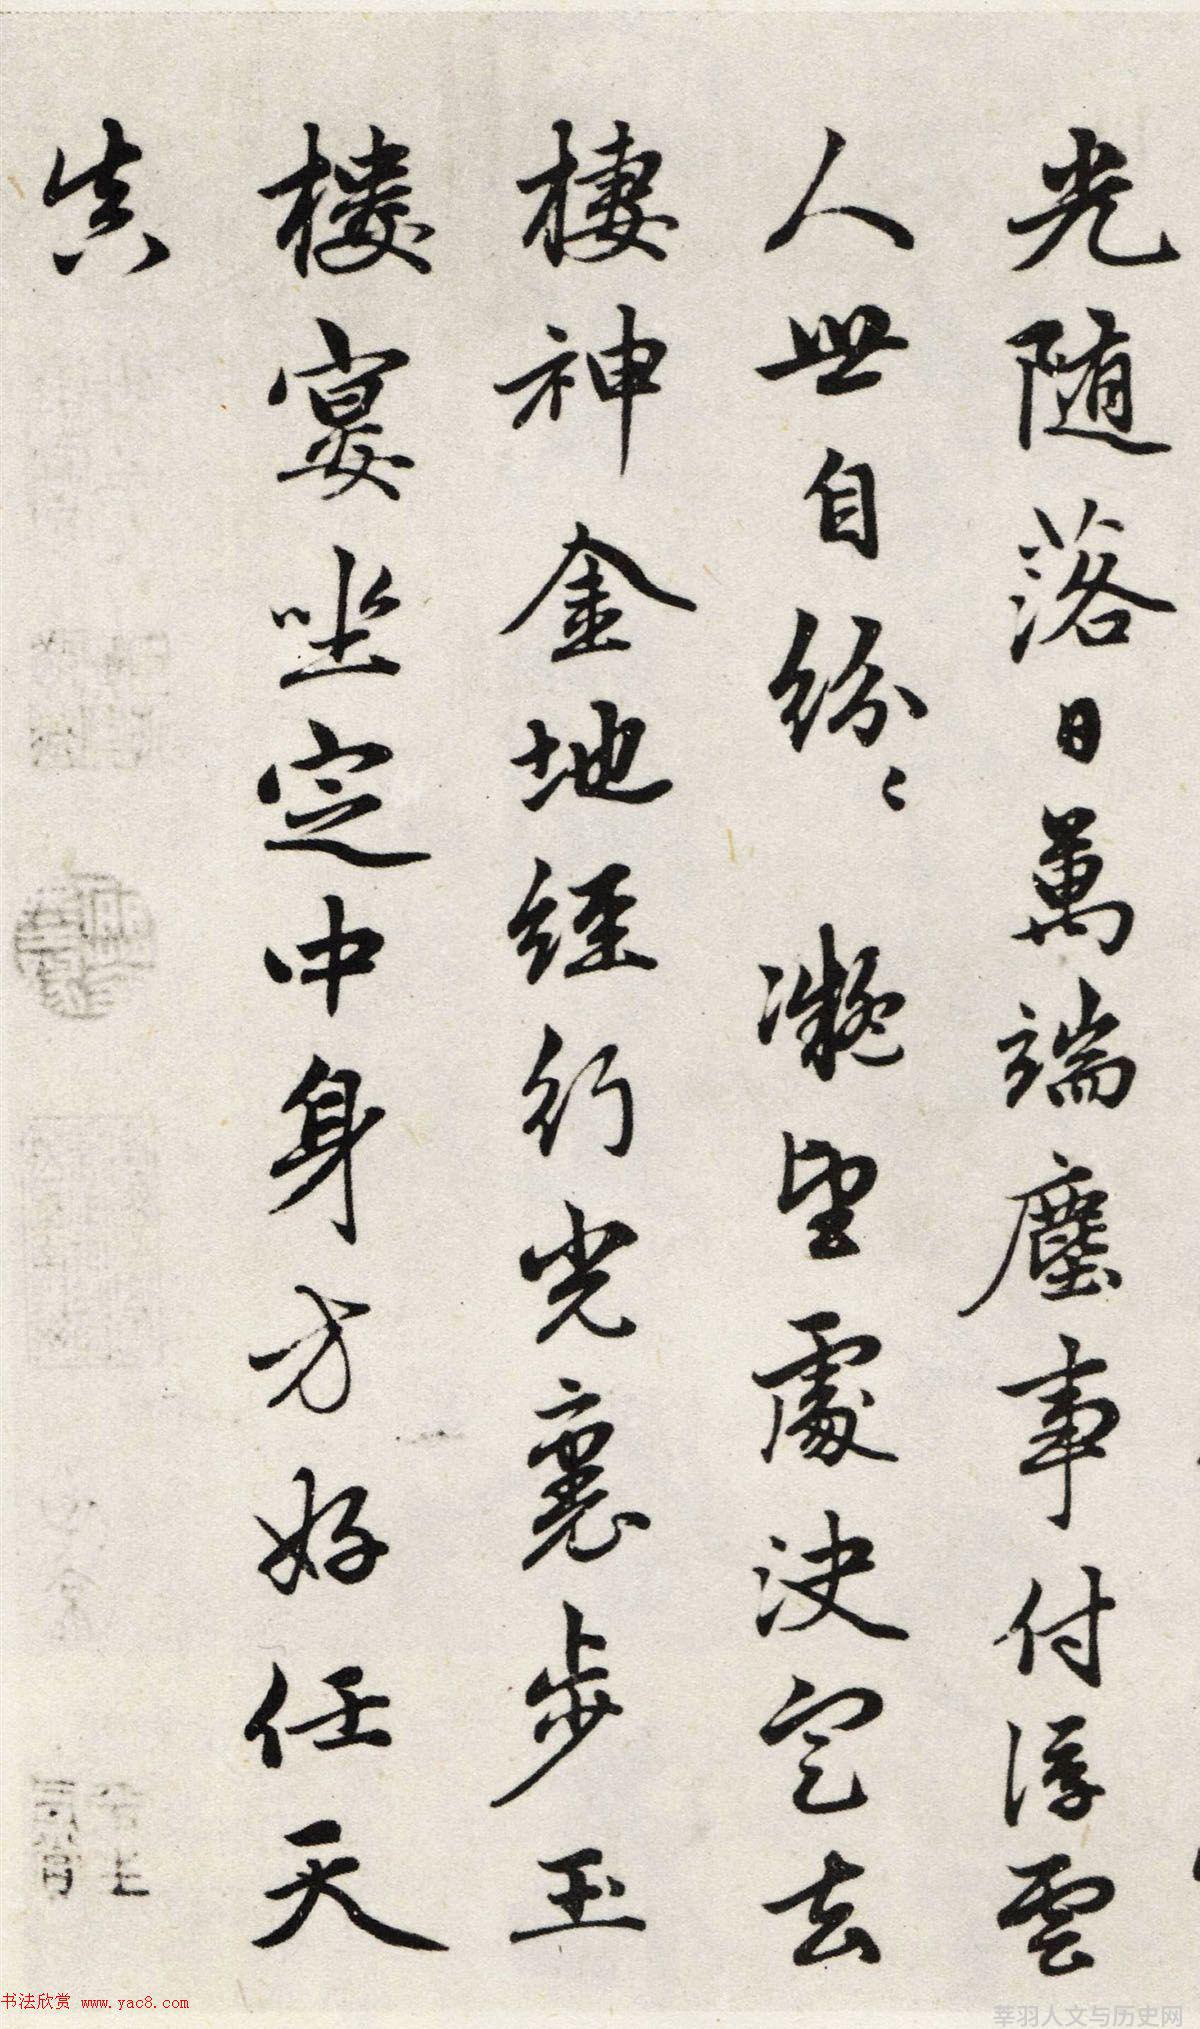 光随落日萬端塵事付浮雲
人世自紛〻 凝望處決定去
棲神金地經行光裏步玉
樓宴坐定中身方好任天
真
书法欣赏 www.yac8.com
莘羽人文与历史网